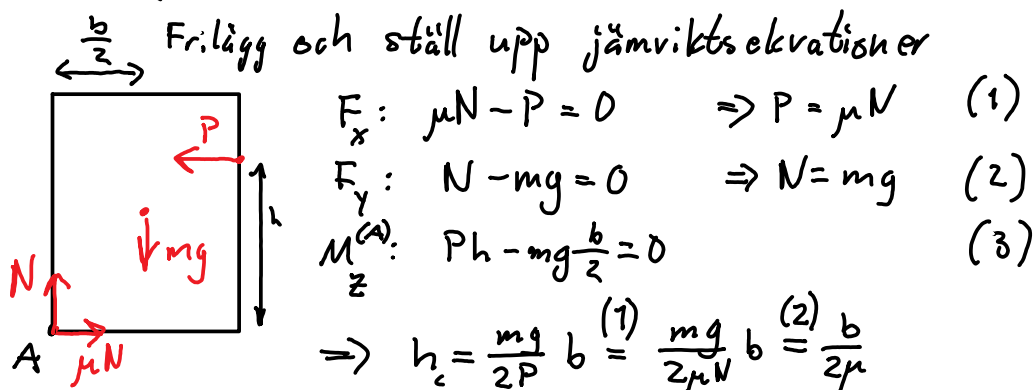 b/2 Frilägg och ställ upp jämviktsekvationer
F_x: μN - P = 0 => P = μN (1)
P
F_y: N - mg = 0 => N = mg (2)
h
M_z^(A): Ph - mg b/2 = 0 (3)
mg
N
A μN
=> h_c = mg/2P b =^(1) mg/2μN b =^(2) b/2μ